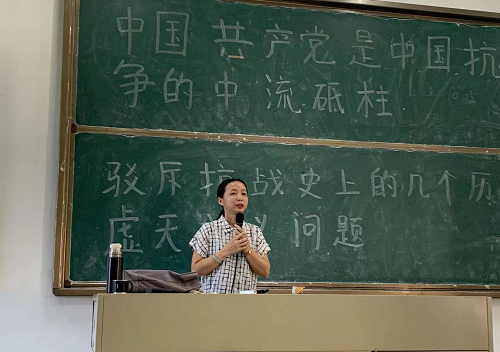 中国共产党是中国抗
争的中流砥柱
驳斥抗战史上的几个历
虚无 问题